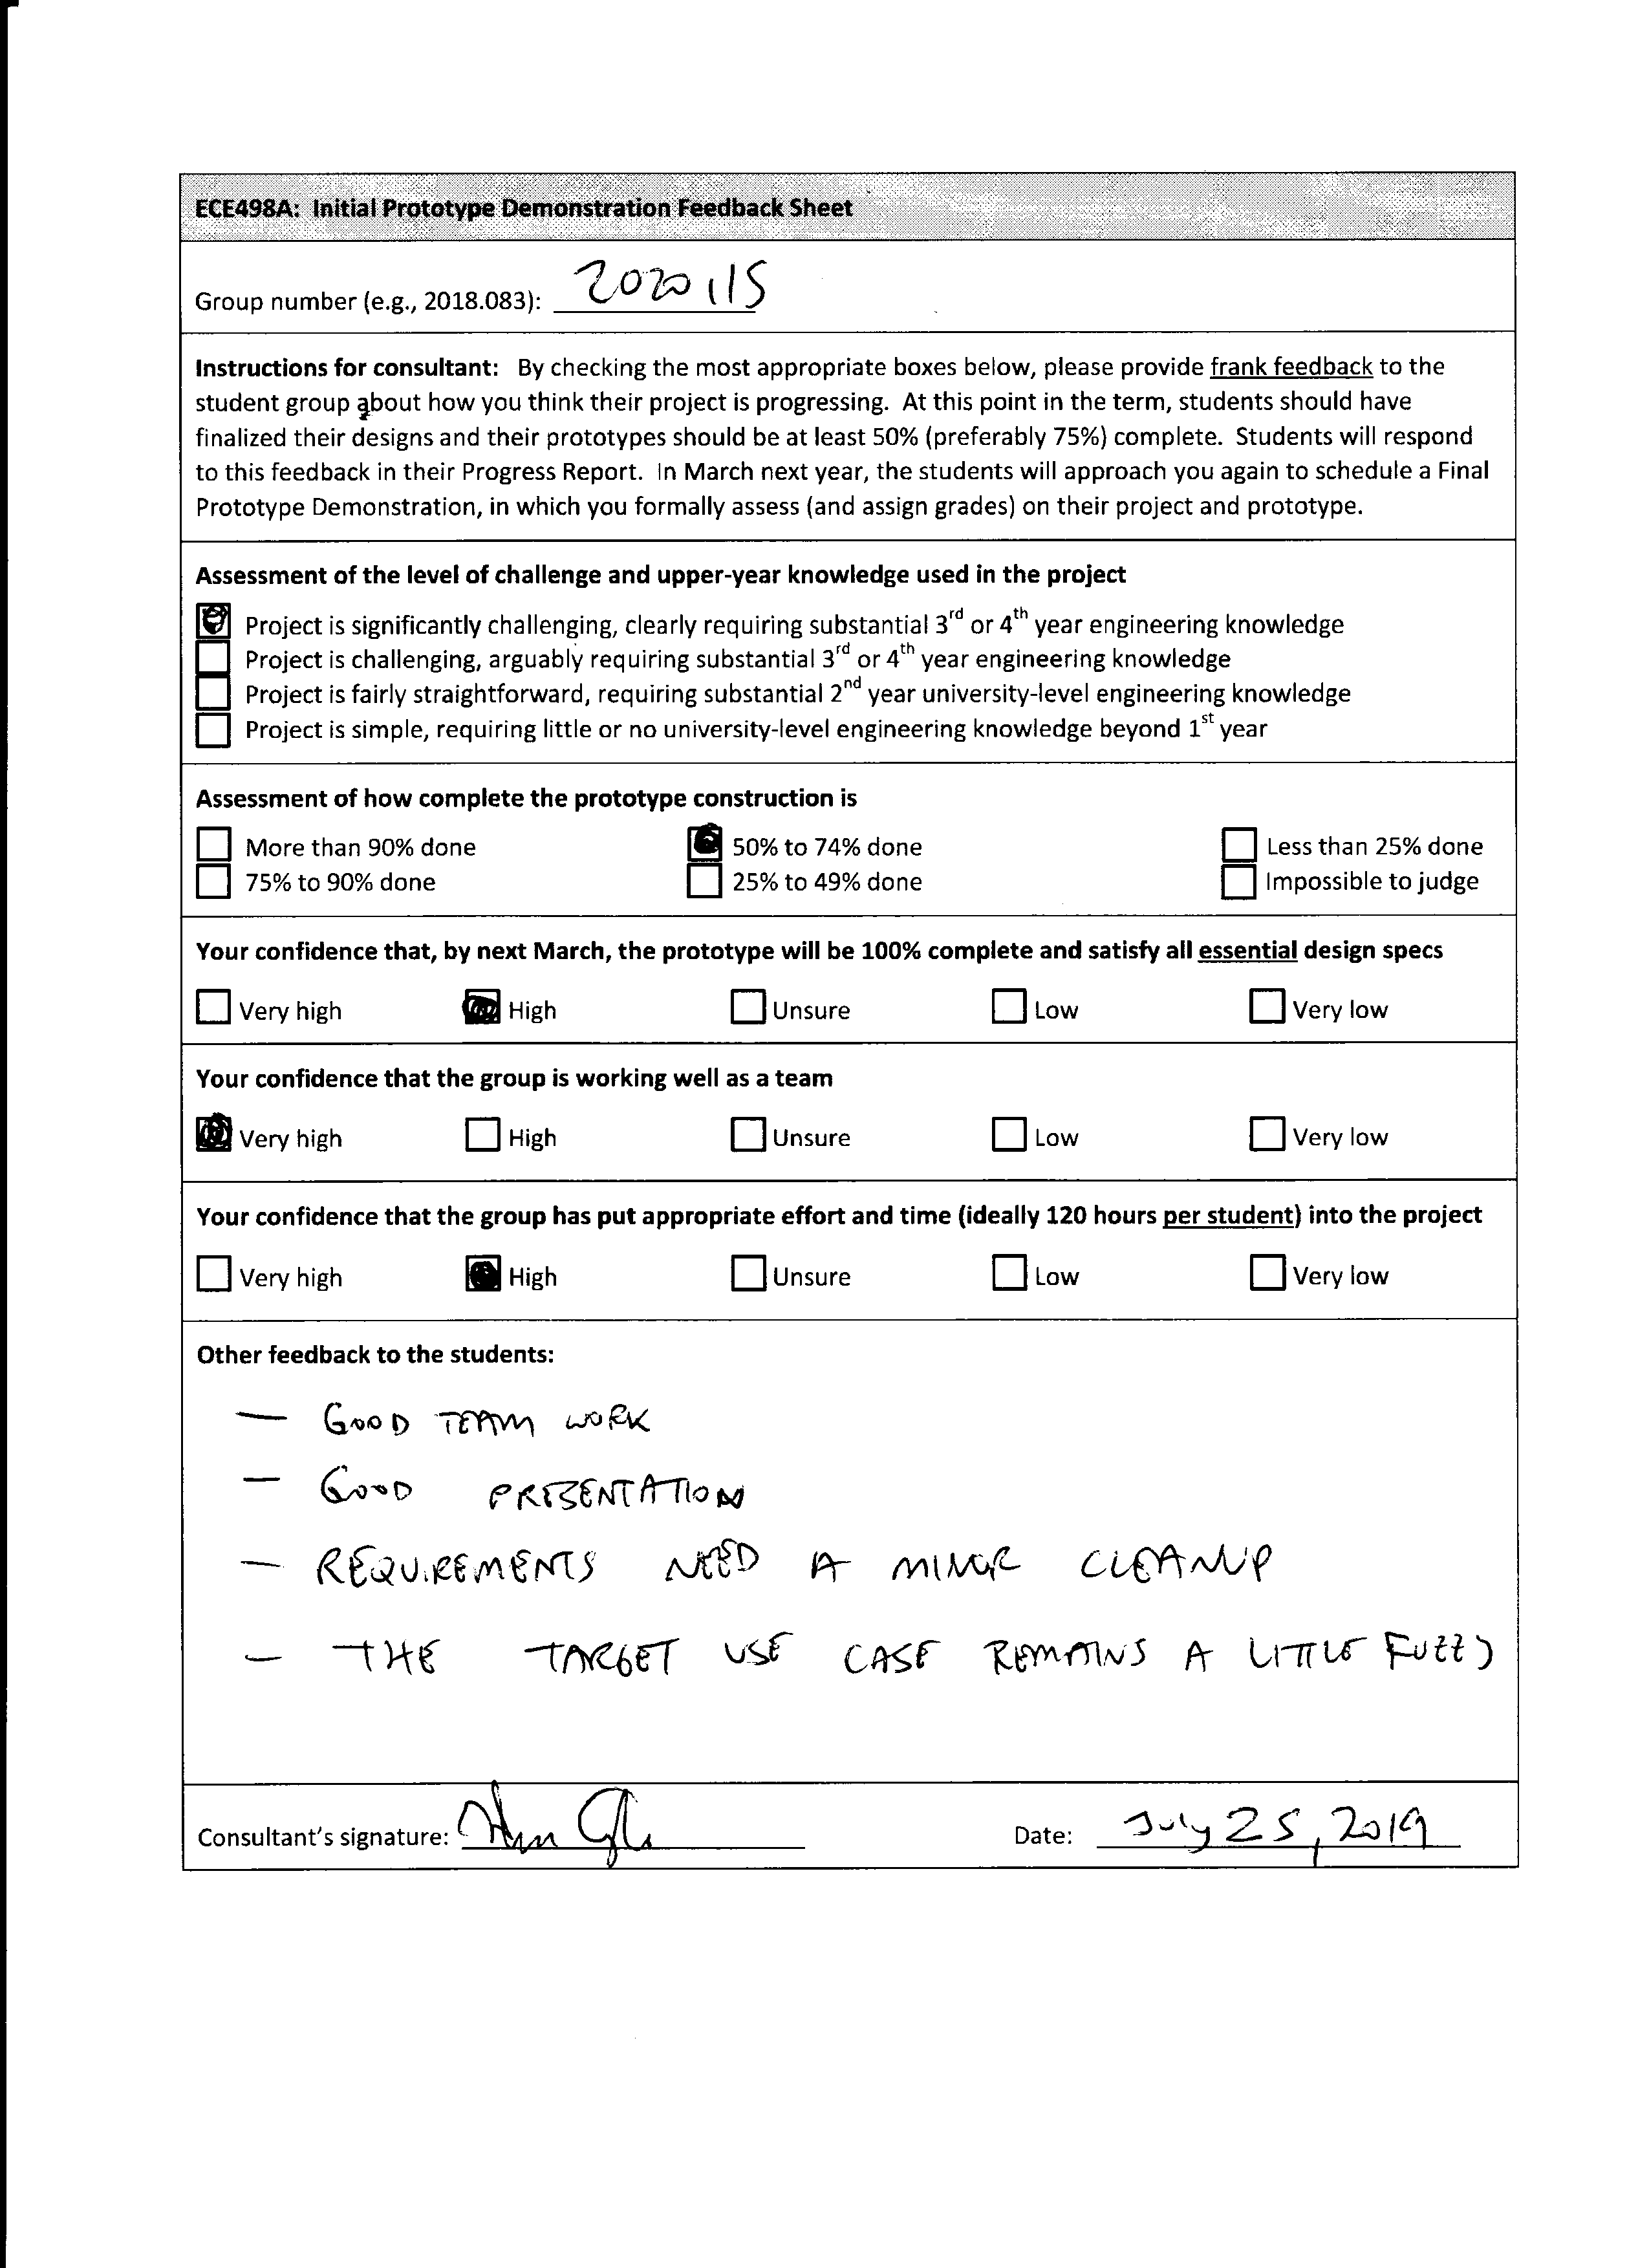 ECE498A: Initial Prototype Demonstration Feedback Sheet
Group number (e.g., 2018.083): 2020 115
Instructions for consultant: By checking the most appropriate boxes below, please provide frank feedback to the
student group about how you think their project is progressing. At this point in the term, students should have
finalized their designs and their prototypes should be at least 50% (preferably 75%) complete. Students will respond
to this feedback in their Progress Report. In March next year, the students will approach you again to schedule a Final
Prototype Demonstration, in which you formally assess (and assign grades) on their project and prototype.
Assessment of the level of challenge and upper-year knowledge used in the project
Project is significantly challenging, clearly requiring substantial 3rd or 4th year engineering knowledge
Project is challenging, arguably requiring substantial 3rd or 4th year engineering knowledge
Project is fairly straightforward, requiring substantial 2nd year university-level engineering knowledge
Project is simple, requiring little or no university-level engineering knowledge beyond 1st year
Assessment of how complete the prototype construction is
More than 90% done 50% to 74% done Less than 25% done
75% to 90% done 25% to 49% done Impossible to judge
Your confidence that, by next March, the prototype will be 100% complete and satisfy all essential design specs
Very high High Unsure Low Very low
Your confidence that the group is working well as a team
Very high High Unsure Low Very low
Your confidence that the group has put appropriate effort and time (ideally 120 hours per student) into the project
Very high High Unsure Low Very low
Other feedback to the students:
— GOOD TEAM WORK
— GOOD PRESENTATION
— REQUIREMENTS NEED A MINOR CLEANUP
— THE TARGET USE CASE REMAINS A LITTLE FUZZY
Consultant's signature: Date: July 25, 2019